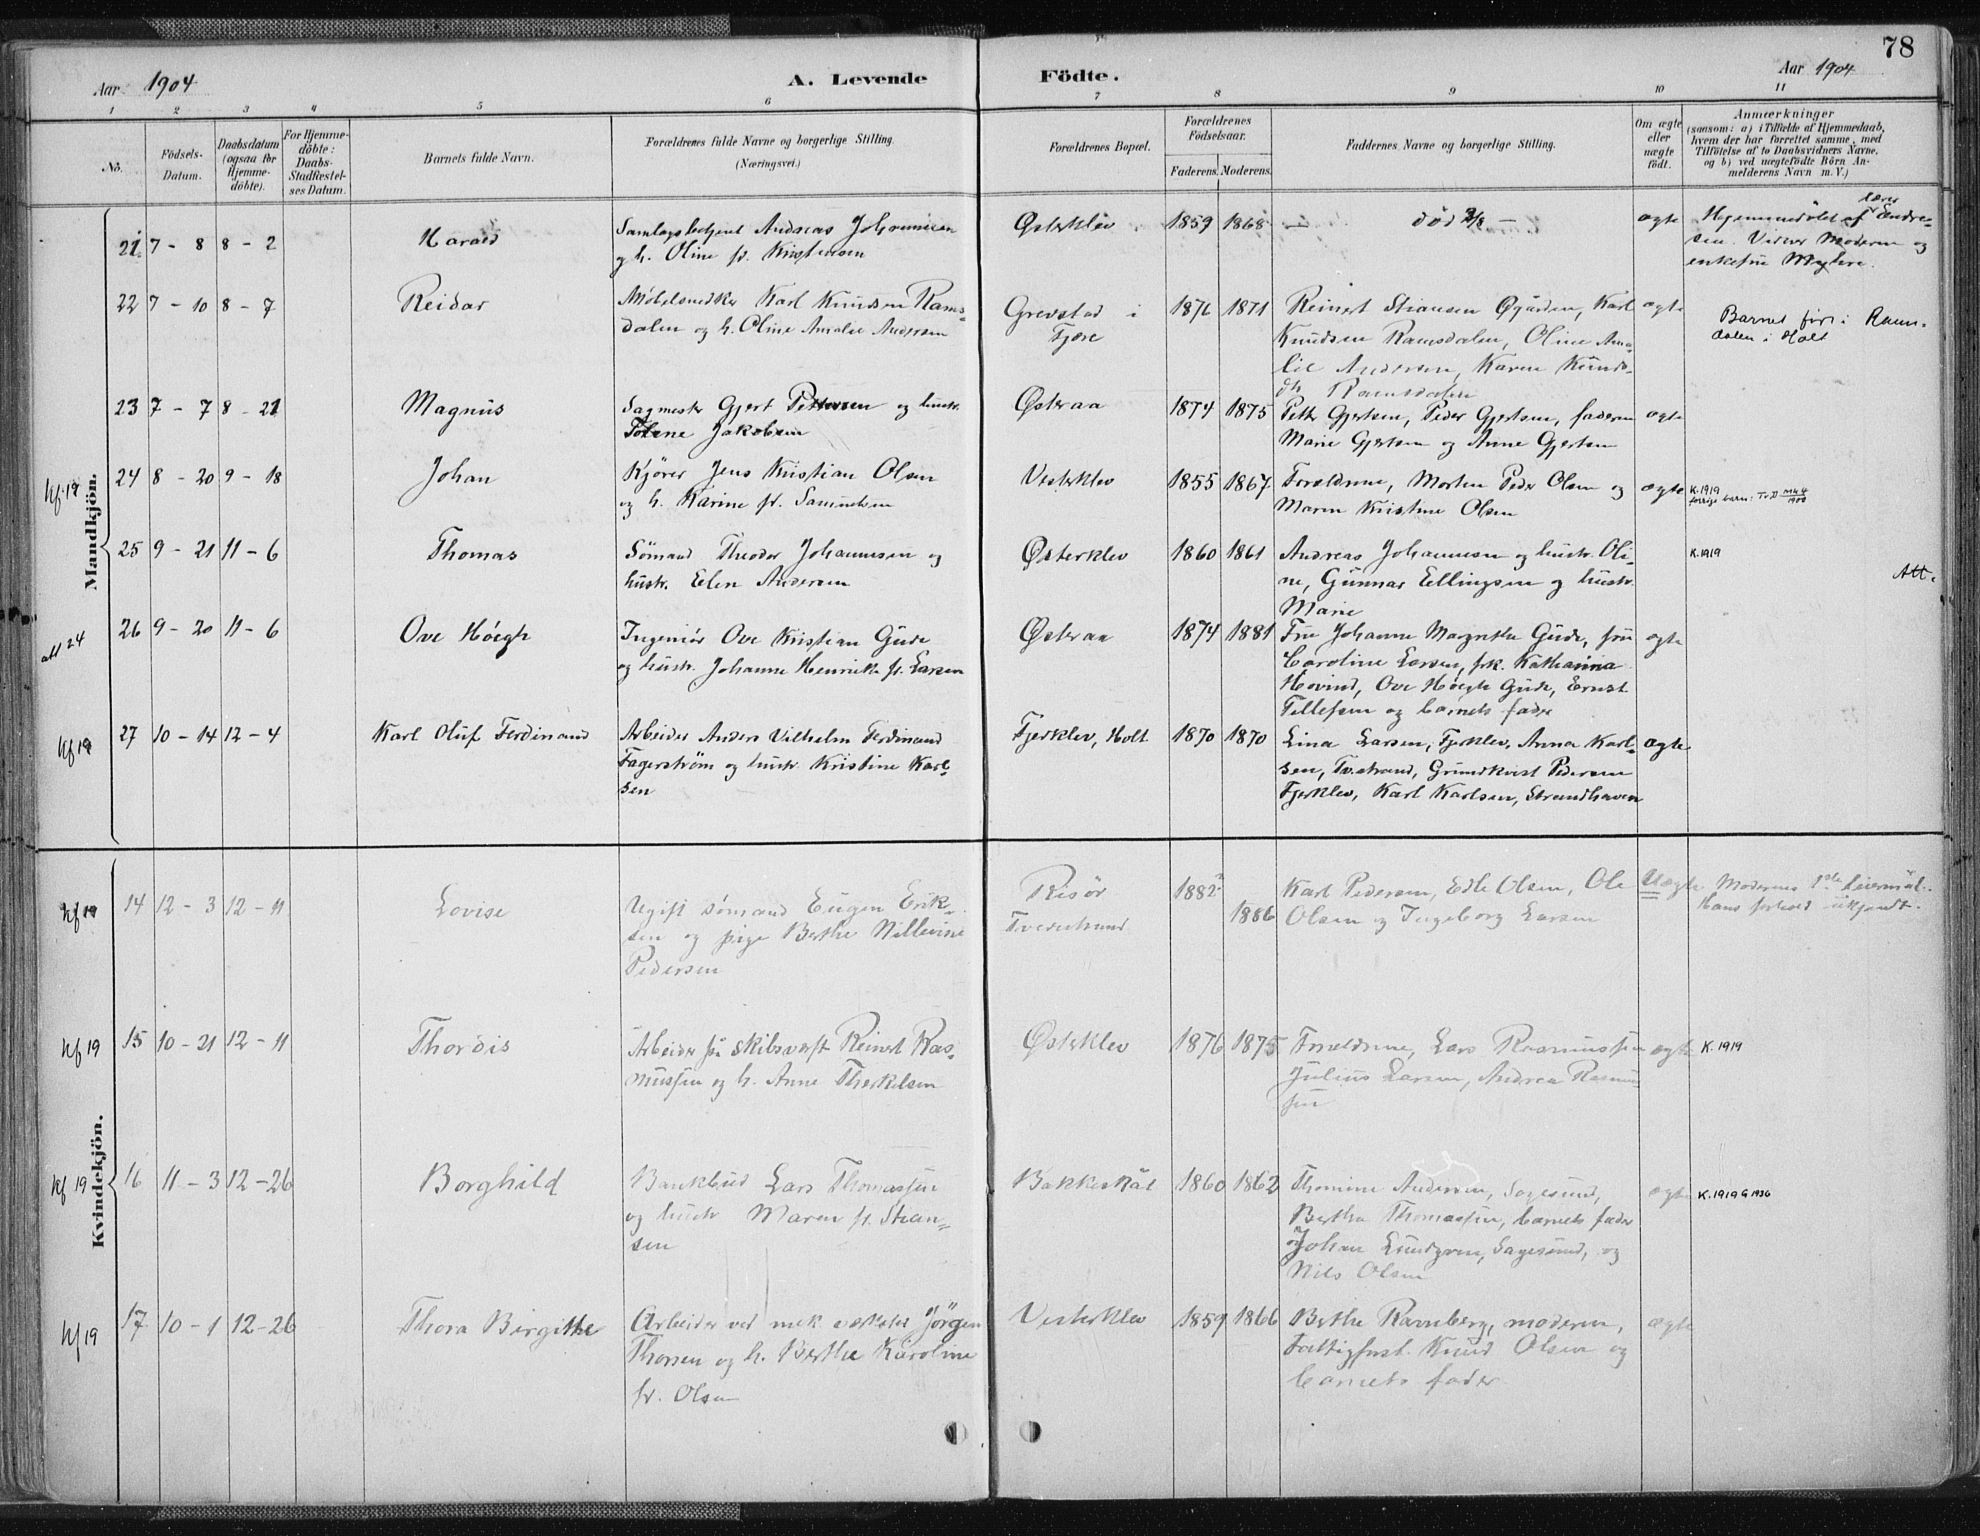 78
Aar 1904
A. Levende
Födte.
Aar 1904
1 2 3 4 5 6 7 8 9 10 11
No.
Födsels-Datum.
Daabsdatum (ogsaa for Hjemme-döbte).
For Hjemme-döbte: Daabs-Stadfæstel-ses Datum.
Barnets fulde Navn.
Forældrenes fulde Navne og borgerlige Stilling.
(Næringsvei.)
Forældrenes Bopæl.
Forældrenes Födselsaar.
Faderens. Moderens.
Faddernes Navne og borgerlige Stilling.
Om ægte eller uægte födt.
Anmærkninger
(saasom: a) i Tilfælde af Hjemmedaab,
hvem der har forrettet samme, med
Tilföielse af to Daabsvidners Navne,
og b) ved uægtefödte Börn An-
melderens Navn m. V.)
Mandkjön.
21 7 - 8 8 - 2 Harald
Samlagsbetjent Andreas Johannesen
og h. Oline f. Kristensen
Østerklev 1859 1868 død 3/8 - ægte
Hjemmedøbt af Endre-
sen. Vidner Moderen og
enkefrue Myhre.
22 7 - 10 8 - 7 Reidar
Møbelsnedker Karl Knudsen Rams-
dalen og h. Oline Amalie Andersen
Grevstad i
Fjære
1876 1871
Reinert Stiansen Øgården, Karl
Knudsen Ramsdalen, Oline Ama-
lie Andersen, Karen Knuds-
dtr Ramsdalen
ægte
Barnet født i Rams-
dalen i Holt
23 7 - 7 8 - 21 Magnus
Sagmester Gjert Pettersen og hustr.
Tolene Jakobsen
Østeraa 1874 1875
Petter Gjertsen, Peder Gjertsen, faderen
Marie Gjertsen og Anne Gjertsen
ægte
Kf. 19
24 8 - 20 9 - 18 Johan
Kjører Jens Kristian Olsen
og h. Karine f. Samuelsen
Vesterklev 1855 1867
Forældrene, Morten Peder Olsen og
Maren Kristine Olsen
ægte
K. 1919
25 9 - 21 11 - 6 Thomas
Sömand Theodor Johannesen og
hustr. Elen Andersen
Østerklev 1860 1861
Andreas Johannesen og hustr. Oli-
ne, Gunnar Ellingsen og hustr.
Marie
K. 1919
Att.
att 24
26 9 - 20 11 - 6 Ove Höegh
Ingeniör Ove Kristian Gude
og hustr. Johanne Henrikke f. Larsen
Østeraa 1874 1881
Fru Johanne Magrethe Gude, fru
Caroline Larsen, frk. Katharina
Hovind, Ove Höegh Gude, Ernst
Tellefsen og barnets fader
ægte
Kf 19
27 10 - 14 12 - 4 Karl Oluf Ferdinand
Arbeider Anders Vilhelm Ferdinand
Fagerström og hustr. Kristine Karl-
sen
Fjerklev, Holt 1870 1870
Lina Larsen, Fjerklev, Anna Karl-
sen, Tvestrand, Grundkvist Pedersen
Fjerklev, Karl Karlsen, Strandhaven
ægte
Kvindekjön.
Kf 19
14 12 - 3 12 - 11 Lovise
Ugift sömand Eugen Erik-
sen og pige Berthe Nillevine
Pedersen
Risör
Tvedestrand
1882
1886
Karl Pedersen, Edle Olsen, Ole
Olsen og Ingeborg Larsen
Uægte
Moderens 1ste leiermål.
Hans forhold ukjendt.
Kf 19
15 10 - 21 12 - 11 Thordis
Arbeider på skibsværft Reinert Ras-
mussen og h. Anne Therkelsen
Østerklev 1876 1875
Forældrene, Lars Rasmussen
Julius Larsen, Andrea Rasmus-
sen
ægte
K. 1919
Kf 19
16 11 - 3 12 - 26 Borghild
Bankbud Lars Thomassen
og hustr Maren f. Stian-
sen
Bakkeskåt 1860 1862
Thomine Andersen, Sagesund,
Berthe Thomassen, barnets fader
og Johan Lundgren, Sagesund, og
Nils Olsen
ægte
K. 1919 G 1936
Kf 19
17 10 - 1 12 - 26 Thora Birgithe
Arbeider ved mek værksted Jörgen
Thorsen og h. Berthe Karoline
f. Olsen
Vesterklev 1859 1866
Berthe Ravnberg, moderen,
Fattigforst. Knud Olsen og
barnets fader
ægte